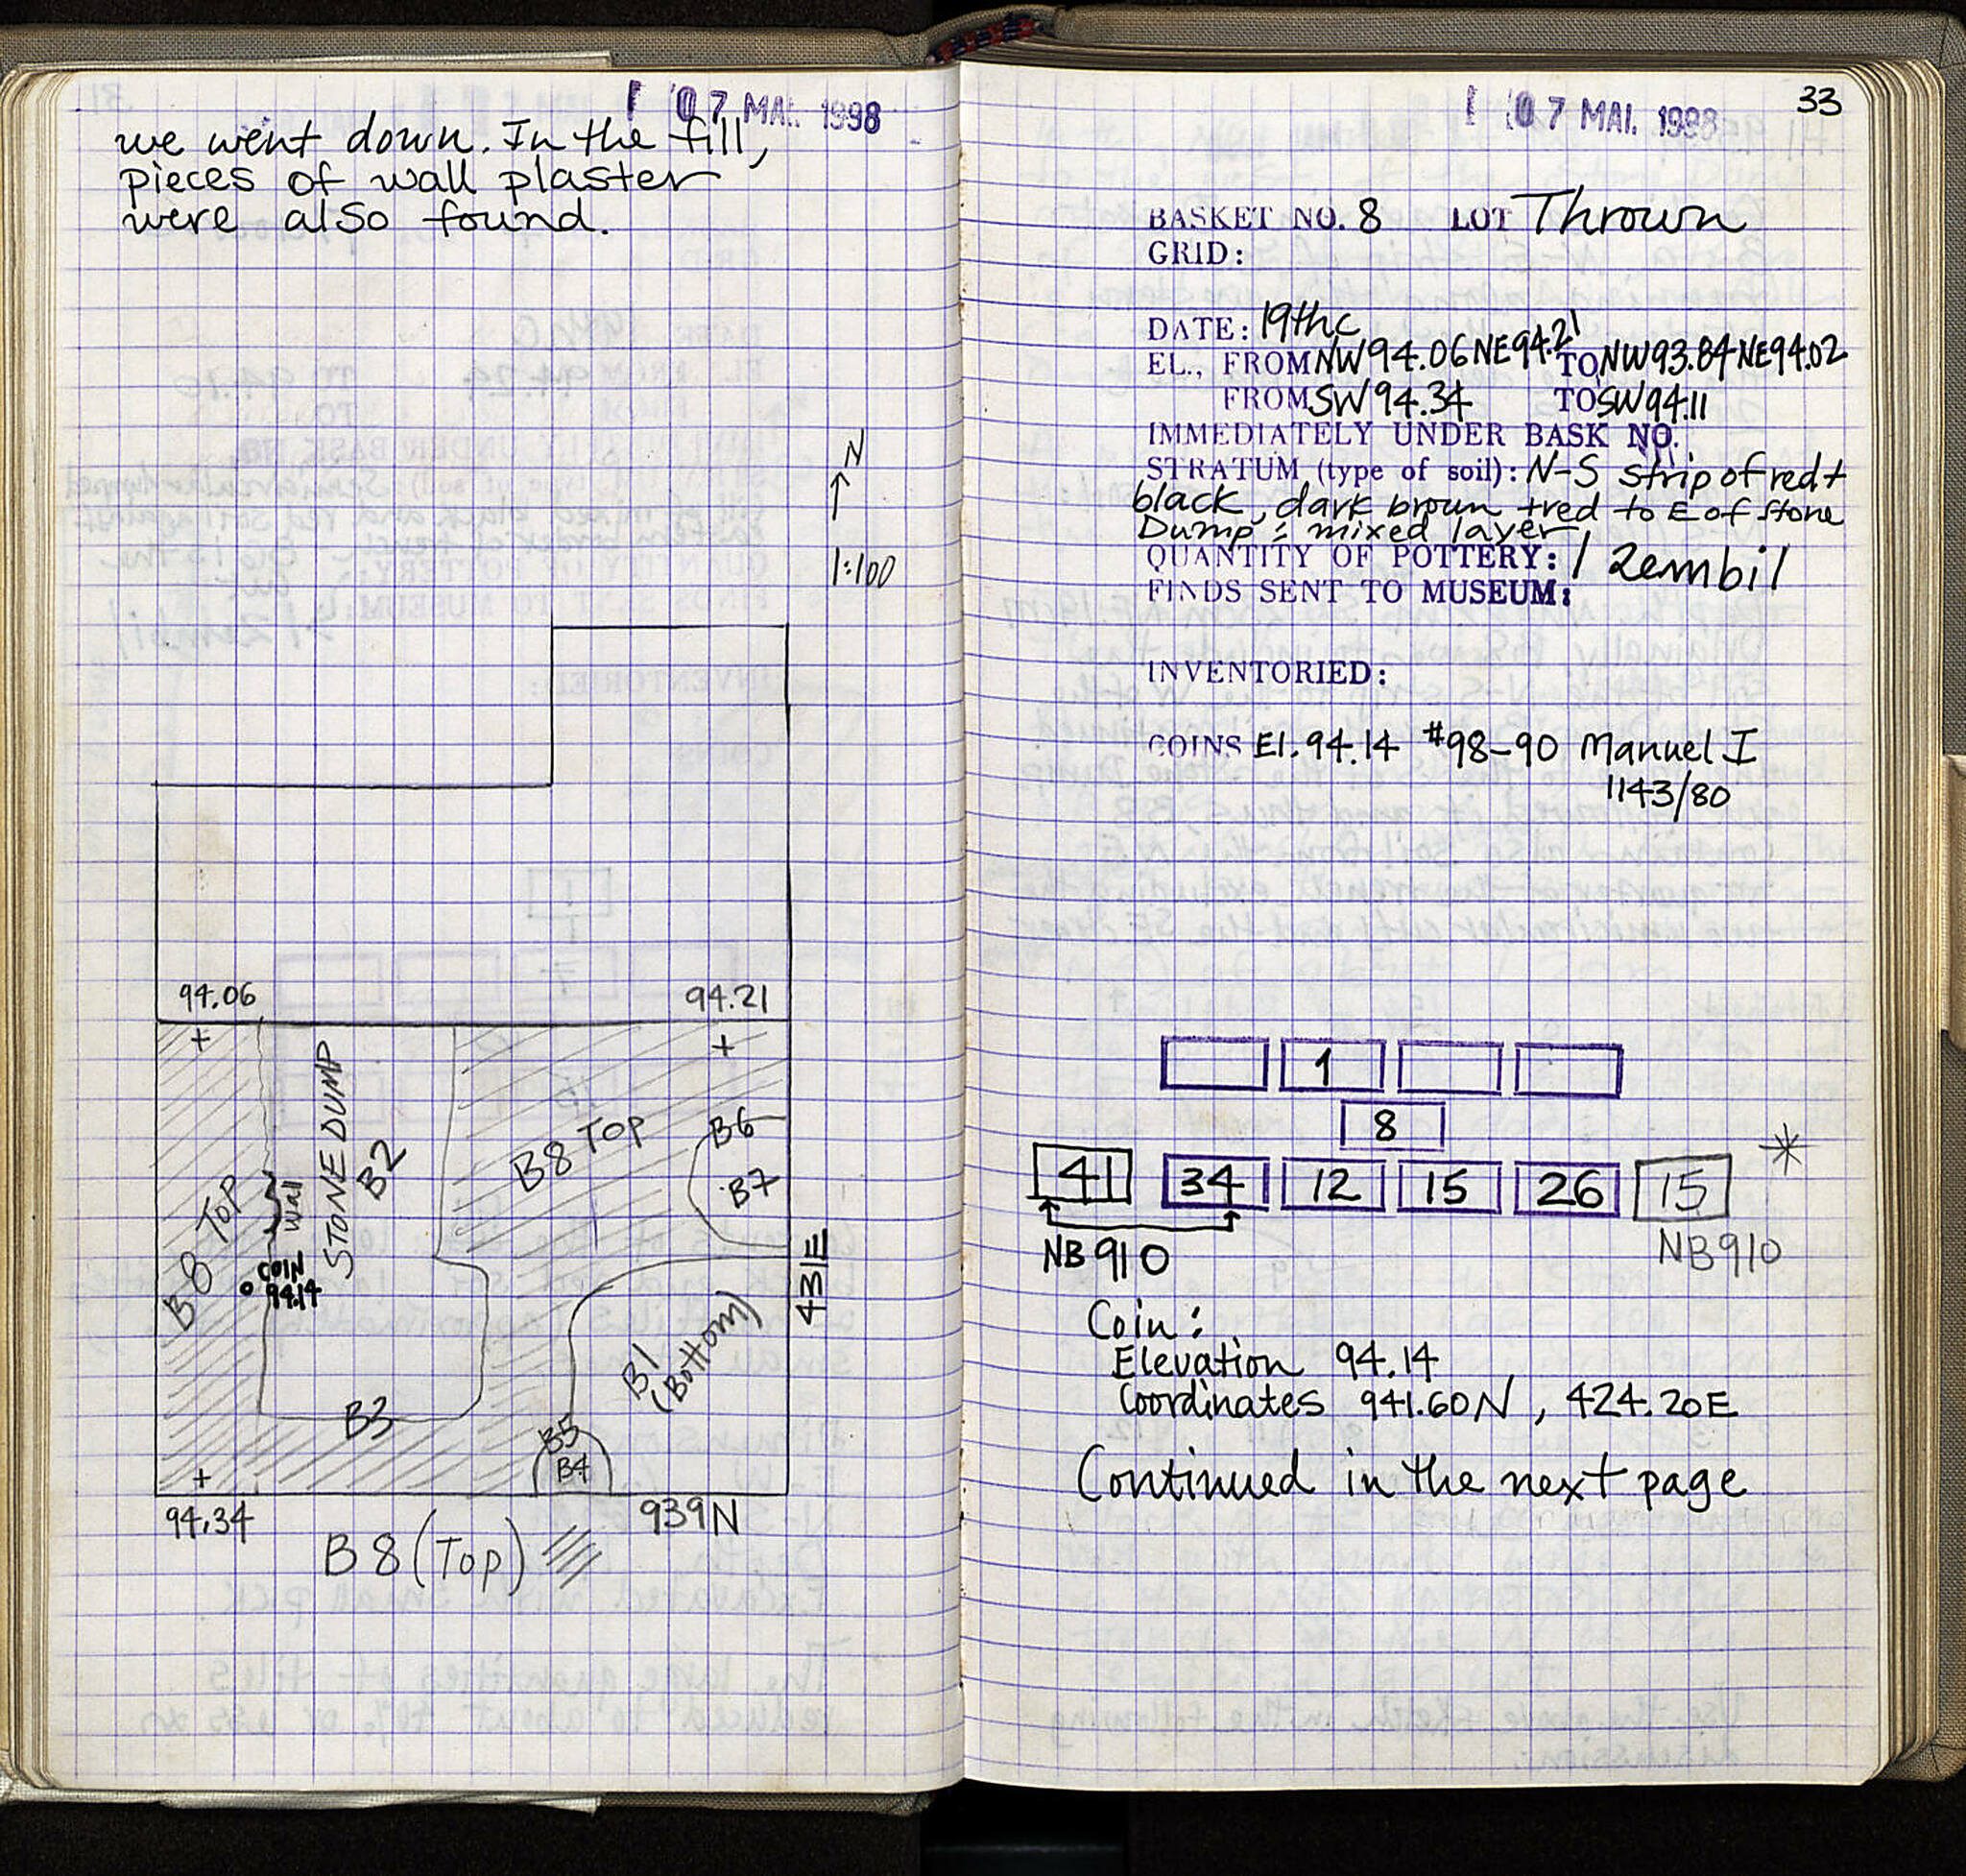 07 MAI. 1998
we went down. In the fill,
pieces of wall plaster
were also found.
N
1:100
94.06 94.21
+ +
STONE DUMP
B2
B8 TOP
B6
B7
B8 TOP
wall
COIN
94.14
431E
B1
(Bottom)
B3
B5
B4
+
94.34 939N
B8 (Top)
07 MAI. 1998
33
BASKET NO. 8 LOT Thrown
GRID:
DATE: 19thc
EL., FROM NW94.06 NE94.21 TO NW93.84 NE94.02
FROM SW 94.34 TO SW94.11
IMMEDIATELY UNDER BASK NO.
STRATUM (type of soil): N-S strip of red +
black, dark brown +red to E of Stone
Dump : mixed layer
QUANTITY OF POTTERY: 1 zembil
FINDS SENT TO MUSEUM:
INVENTORIED:
COINS El. 94.14 #98-90 Manuel I
1143/80
1
8
41 34 12 15 26 15 *
NB910 NB910
Coin:
Elevation 94.14
Coordinates 941.60N, 424.20E
Continued in the next page